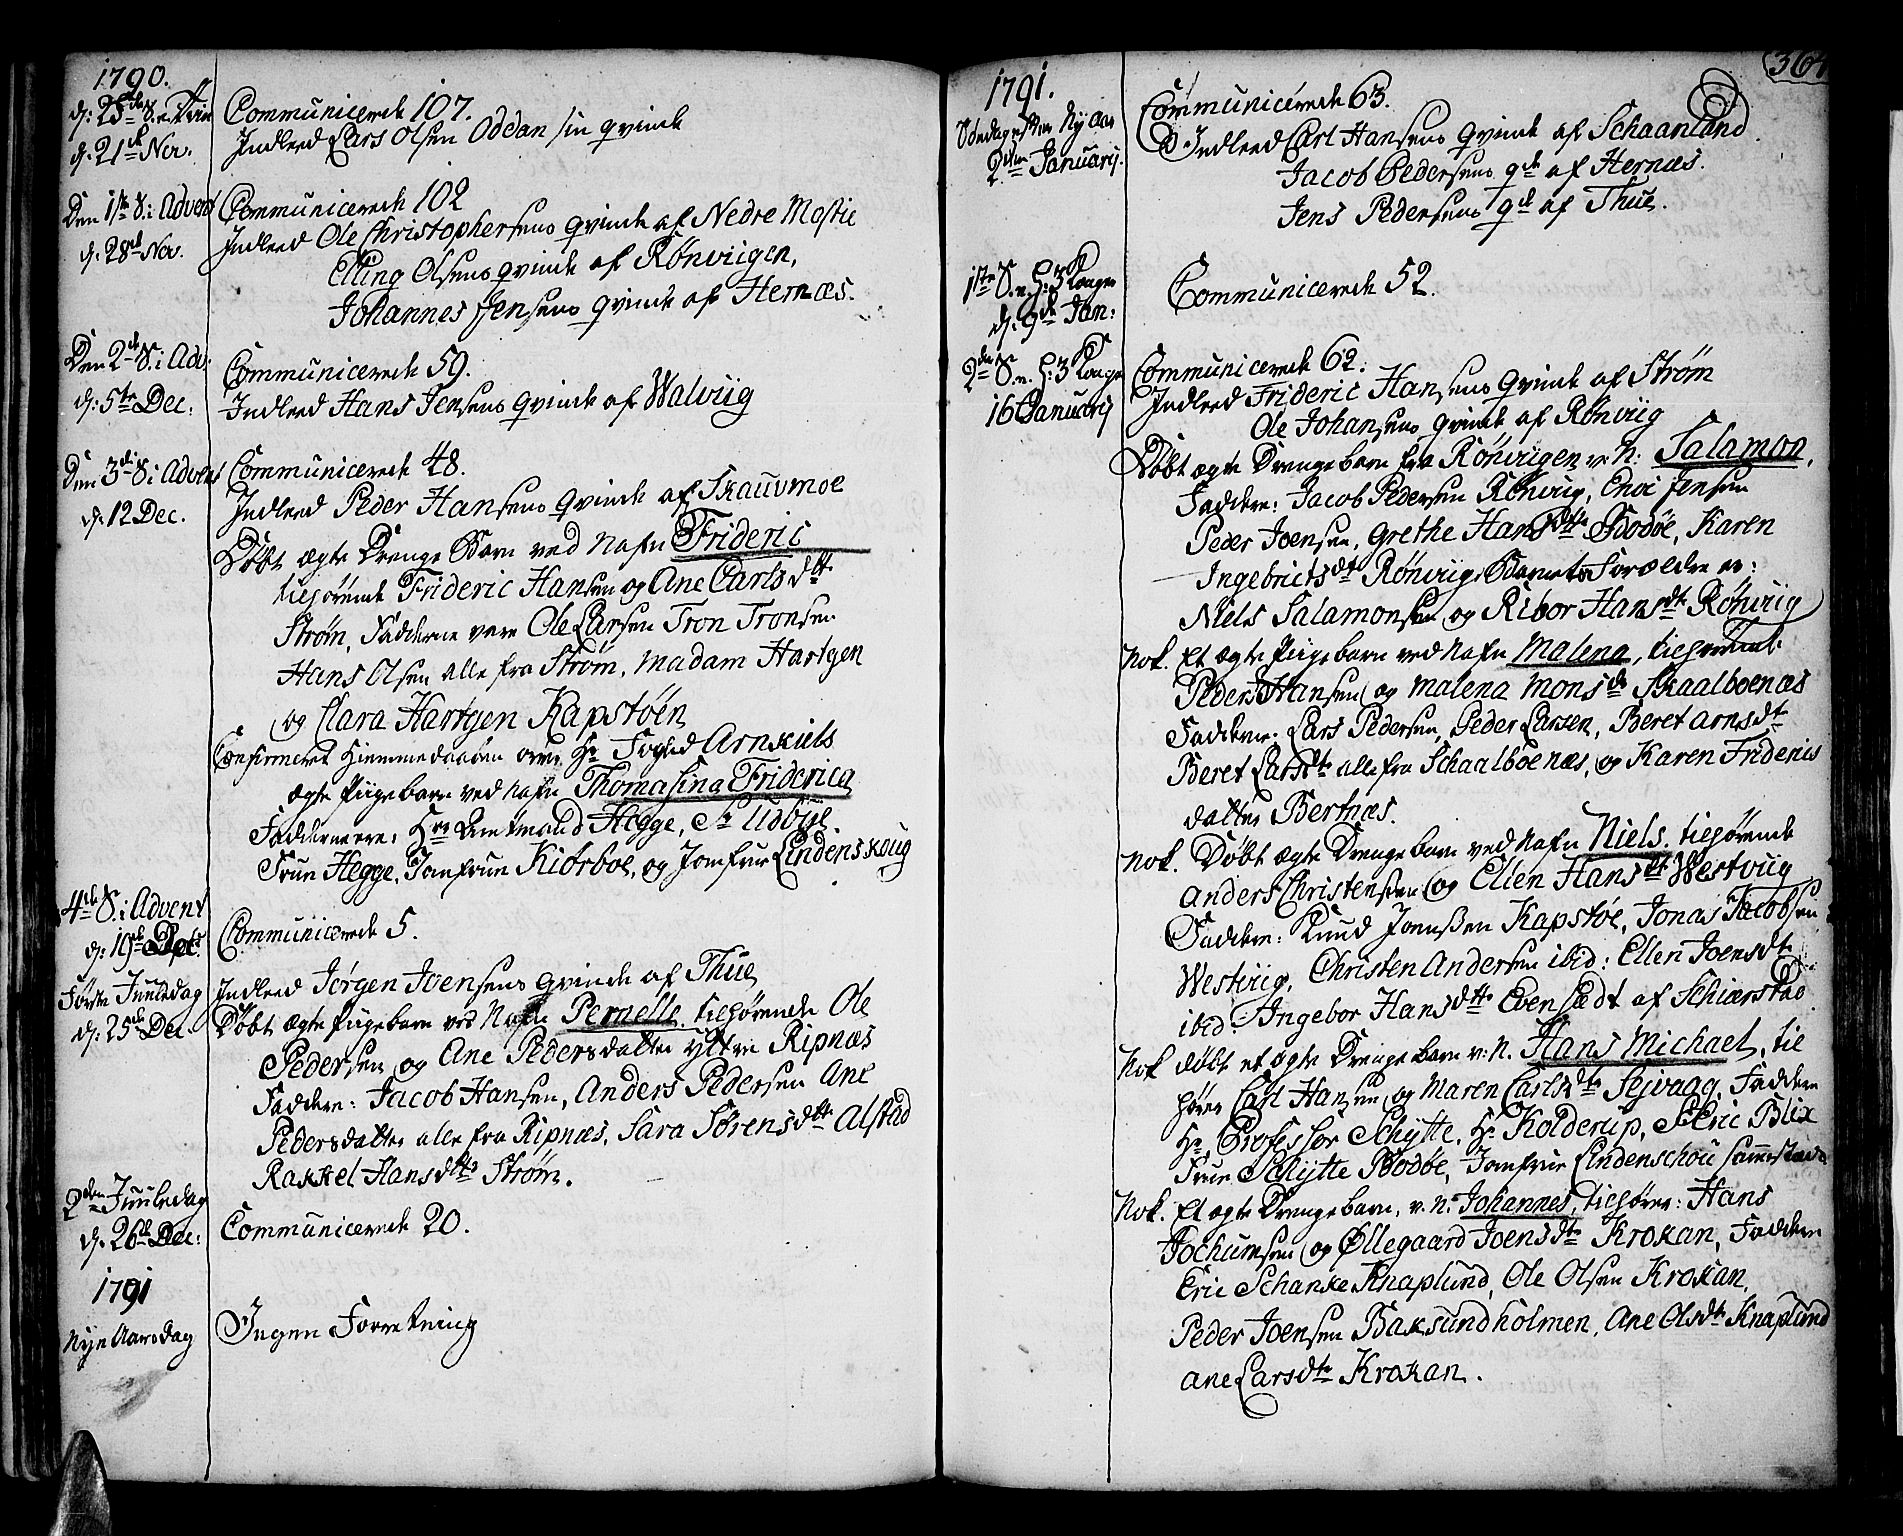 1790.
d: 25de S. e. Trin
d. 21de Nov.
Communicerede 107.
Indleed Lars Olsen Oddan sin qvinde
Den 1ste S: i Advent
d. 28de Nov.
Communicerede 102
Indleed Ole Christophersens qvinde af Nedre Mostie
Elling Olsens qvinde af Rønviigen,
Johannes Jensens qvinde af Hernæs.
Den 2de S. i Adv:
d: 5te Dec:
Communicerede 59.
Indleed Hans Jensens qvinde af Walviig
Den 3die S: i Advent
d. 12 Dec.
Communicerede 48.
Indleed Peder Hansens qvinde af Skauvmoe
Døbt ægte Drenge Barn ved Nafn Frideric
tilhørende Frideric Hansen og Ane Carlsdtt
Strøm, Fadderne vare Ole Larsen Tron Tronsen
Hans Olsen alle fra Strøm, Madam Hartgen
og Clara Hartgen Kapstøen
Confirmeret Hiemmedaaben over Hr Foged Arnkiels
ægte Piigebarn ved Nafn Thomasina Friderica
Fadderne ere: Hrr Amtmand Hegge, Sr Udbye.
Frue Hegge, Jomfrue Kiørboe, og Jomfrue Lindenskoug
4de S. i Advent
d: 19de Dec.
Communicerede 5.
Første Juuledag
d: 25de Dec
Indleed Jørgen Joensens Qvinde af Thue
Døbt ægte Piigebarn ved Nafn Pernelle. tilhørende Ole
Pedersen og Ane Pedersdatter yttre Ripnæs
Faddere: Jacob Hansen, Anders Pedersen Ane
Pedersdatter alle fra Ripnæs, Sara Sørensdtt Alstad
Rakkel Hansdtt Strøm.
2den Juuledag
d. 26de Dec:
Communicerede 20.
1791
Nye Aarsdag
Ingen Forretning
364
1791.
Søndag efter Nyaar
2den Januarij.
Communicerede 63.
Indleed Carl Hansens Qvinde af Schaanland
Jacob Pedersens qde af Hernæs.
Jens Pedersens qd af Thue.
1ste S. e. H: 3 Konger
d. 9de Jan:
Communicerede 52.
2den S. e. H: 3 Konger
16 Januarij
Communicerede 62.
Indleed Frideric Hansens Qvinde af Strøm
Ole Johansens Qvinde af Rønviig
Døbt ægte Drengebarn fra Rønvigen v. N: Salamon,
Faddere: Jacob Pedersen Rønviig, Enoc Jensen
Peder Joensen, Grethe Hansdtt Bodøe, Karen
Ingebrictsdt Rønviig. Barnets Forældre er:
Niels Salamonsen og Ribor Hansdt Rønviig
Nok. Et ægte Piigebarn ved Nafn Malena, tilhørende
Peder Hansen og Malena Monsdr Skaalboenæs
Faddere: Lars Pedersen, Peder Larsen, Beret Arnsdt
Beret Larsdtr alle fra Schaalboenæs, og Karen Friderics
datter Bertnæs.
Nok. Døbt ægte Drengebarn ved Nafn Niels. tilhørende
Anders Christensen og Ellen Hansdt Westviig
Faddere: Knud Joensen Kapstøe, Jonas Jacobsen
Westviig, Christen Andersen ibid: Ellen Joensdt
ibid: Ingebor Hansdtt Evensædt af Schiærstad
Nok døbt et ægte Drengebarn v: N. Hans Michael, til
hører Carl Hansen og Maren Carlsdtr Sejvaag, Faddere
Hr Professor Schytte, Hr Kolderup, S. Eric Blix
Frue Schytte Bodøe, Jomfrue Lindenschou sammestæds
Nok. Et ægte Drengebarn, v. N. Johannes, tilhører: Hans
Jochumsen og Øllegaard Joensdtr Krokan, Faddere
Eric Schanke Knaplund, Ole Olsen Krokan,
Peder Joensen Baksundholmen, Ane Olsdtr Knaplund
Ane Larsdtr Krokan.